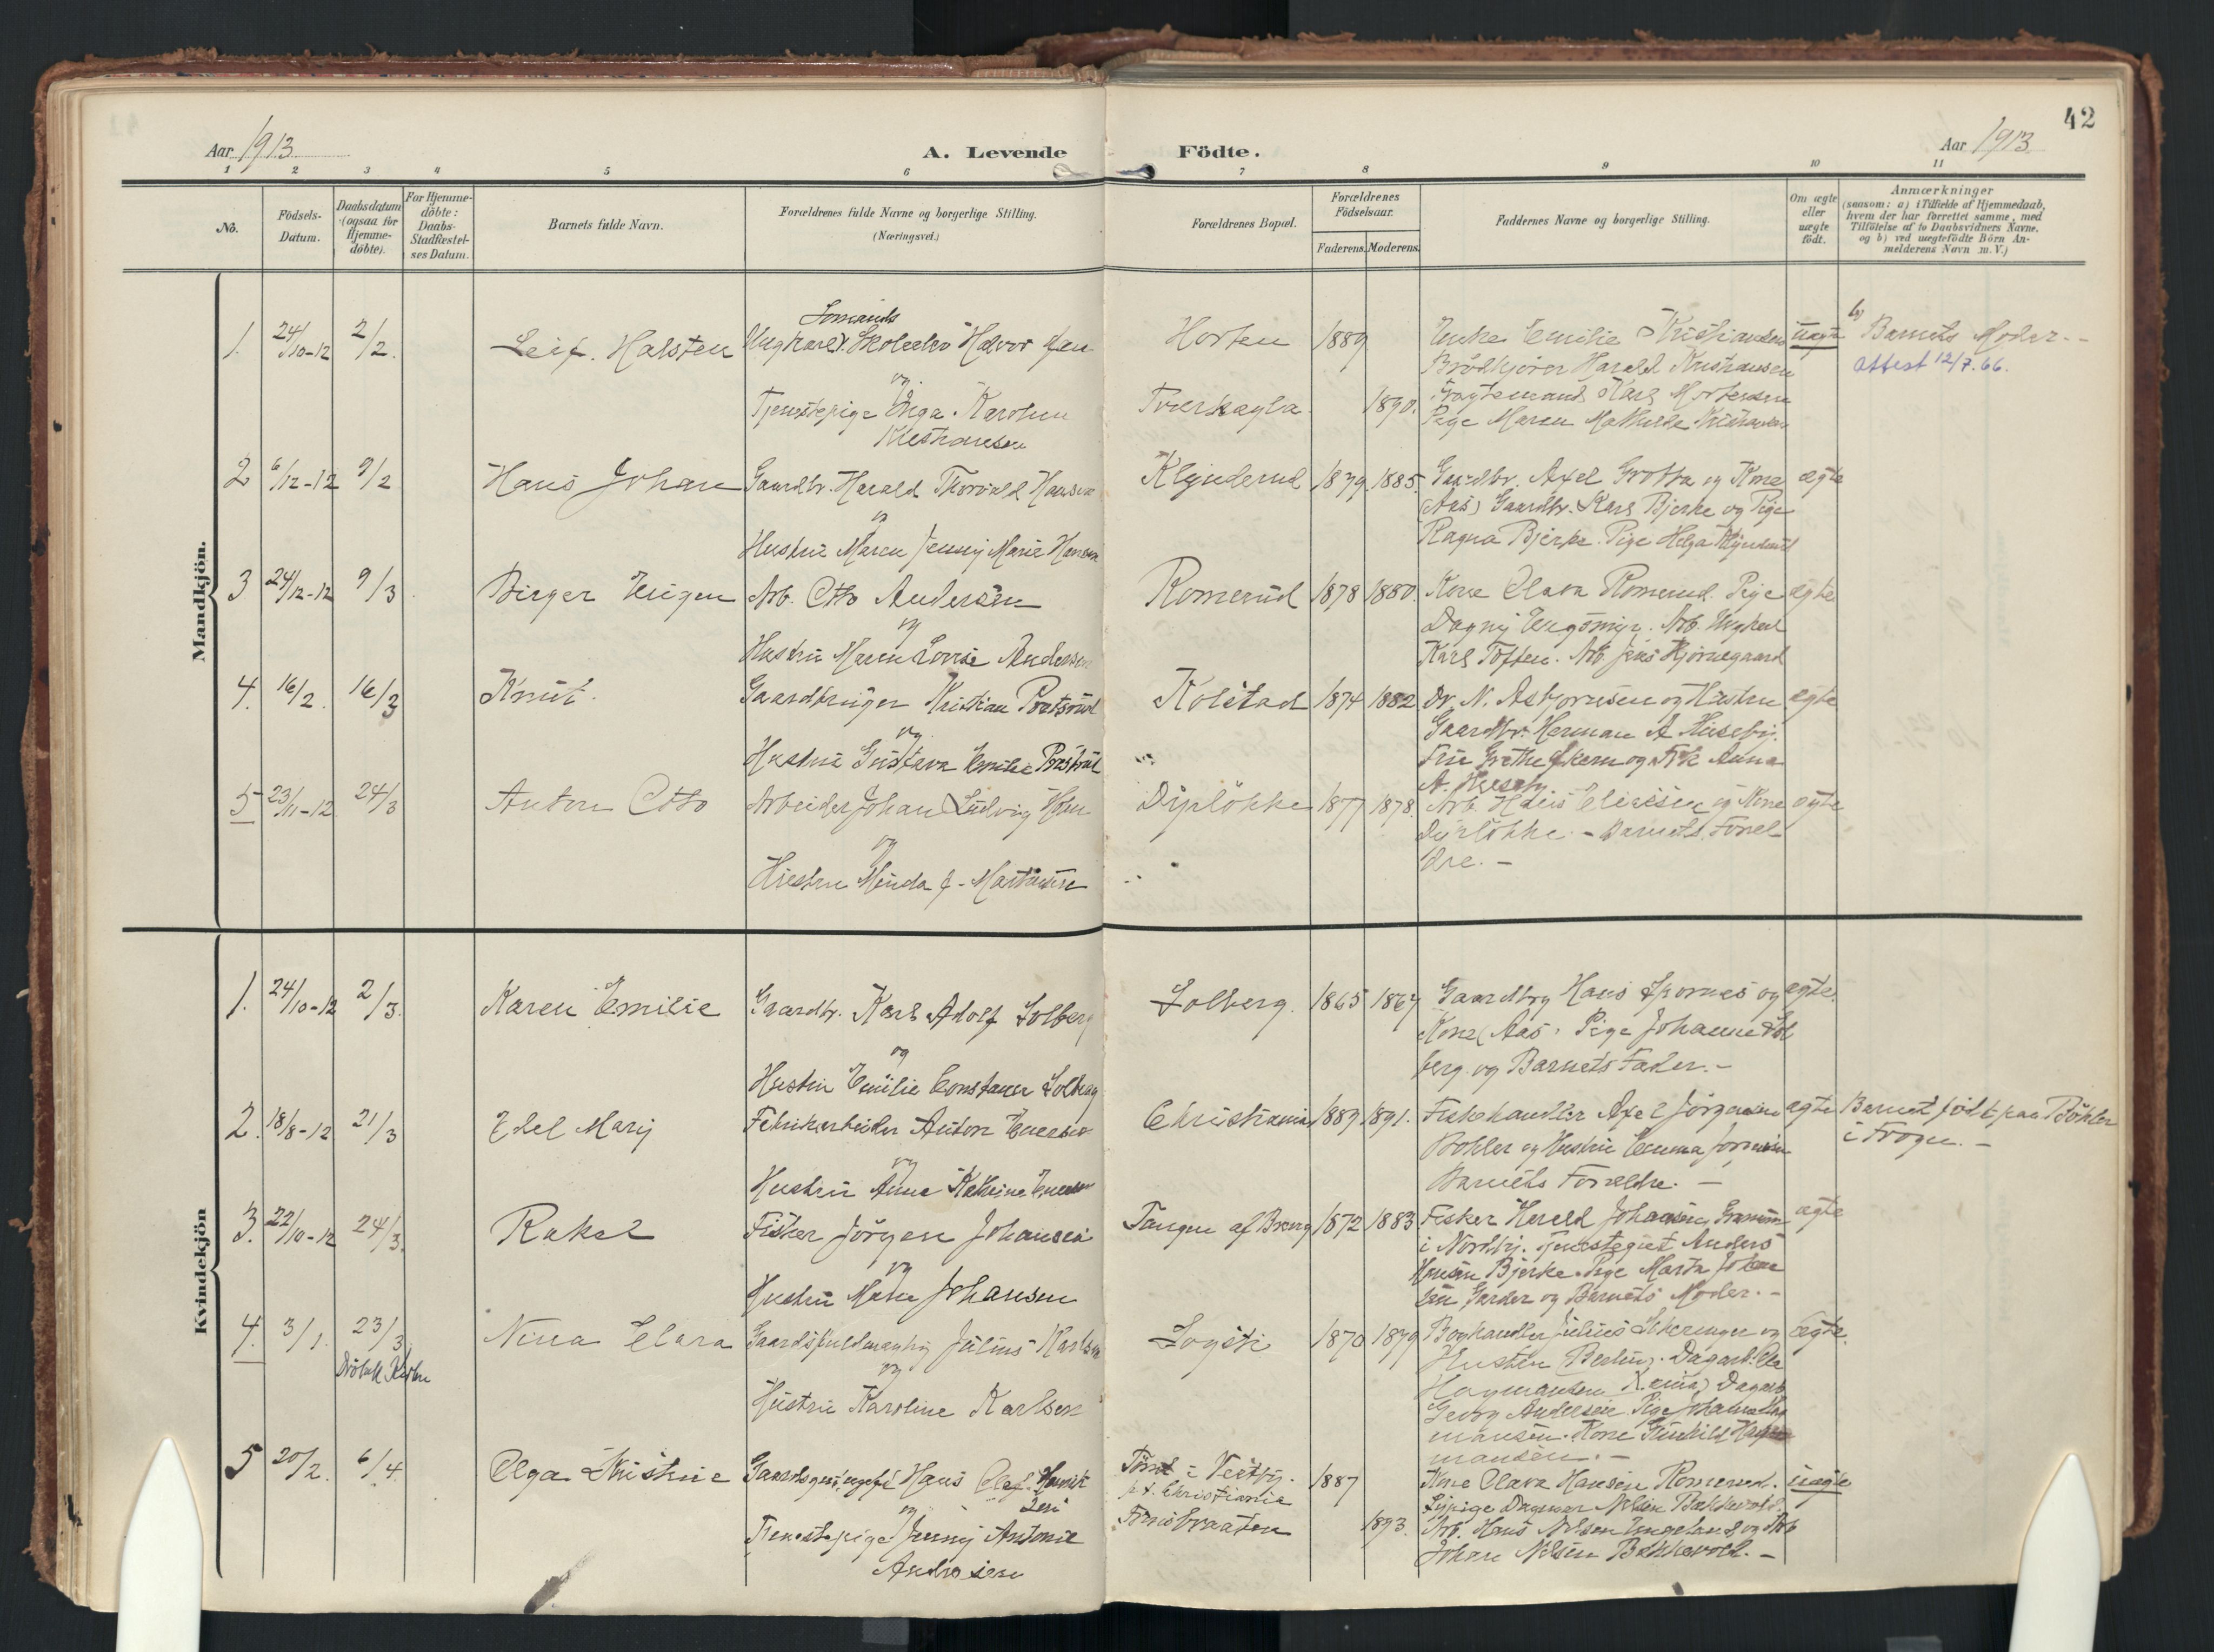 42
Aar 1913
A. Levende Födte.
Aar 1913
1 2 3 4 5 6 7 8 9 10 11
No.
Födsels-
Datum.
Daabsdatum
(ogsaa for
Hjemme-
döbte).
For Hjemme-
döbte:
Daabs-
Stadfæstel-
ses Datum.
Barnets fulde Navn.
Forældrenes fulde Navne og borgerlige Stilling.
(Næringsvei.)
Forældrenes Bopæl.
Forældrenes
Födselsaar.
Faderens. Moderens.
Faddernes Navne og borgerlige Stilling.
Om ægte
eller
uægte
födt.
Anmærkninger
(saasom: a) i Tilfælde af Hjemmedaab,
hvem der har forrettet samme, med
Tilföielse af to Daabsvidners Navne,
og b) ved uægtefödte Börn An-
melderens Navn m. V.)
Mandkjön.
1. 24/10-12 2/2. Leif. Halsten
Ungkarl Halvor
og
Tjenestepige Inga Karoline
Kristiansen
Horten 1889
1890.
Enke Emilie Kristiansen
Brödkjører Harald Kristiansen
Karl Mortensen
Pige Maren Mathilde Kristiansen
uægte
b) Barnets Moder.-
Attest 12/7.66.
2 6/12-12 9/2 Hans Johan
Gaardbr. Harald Thorvald Hansen
og
Hustru Maren Jenny Marie Hansen
Klynderud 1879. 1885.
Gaardbr. Axel Grotta og Kone
(Aas) Gaardbr. Karl Bjerke og Pige
Ragna Bjerke. Pige Helga Klynderud
ægte
3 24/12-12 9/3 Birger Eugen
Arb. Otto Andersen
og
Hustru Maren Lovise Andersen
Romerud 1878 1880.
Kone Olava Romerud. Pige
Dagny Arb. Ungkarl
Karl Toften. Arb. Jens
ægte
4. 16/2. 16/3 Knut.
Gaardbruger Kristian
og
Hustru Gustava Emilie
Kolstad 1874 1882
Dr. N. Asbjørnsen og Hustru
Gaardbr. Herman A Huseby.
Fru Grethe og Frk Anna
A. Huseby
ægte
5 23/11-12 24/3 Anton Otto
Arbeider Johan Ludvig
og
Hustru Minda
Dyrløkke 1877 1878.
Arb. Hans og Kone
Dyrløkke. - Barnets Foræl
dre. -
ægte
Kvindekjön
1. 24/10-12 2/3. Karen Emilie
Gaardbr. Karl Adolf Solberg
og
Hustru Emilie Constance Solberg
Solberg. 1865 1867
Gaardbrg Hans og
Kone (Aas). Pige Johanne Sol
berg og Barnets Fader.-
ægte.
2. 18/8-12 21/3 Edel Mary
Fabrikarbeider Anton
og
Hustru Anna
Christiania 1889 1891.
Fiskehandler Axel Jörgensen
Bohler og Hustru Emma
Barnets Forældre. -
ægte
Barnet födt paa Böhler
i Frogn. -
3. 22/10-12 24/3. Rakel
Fisker Jörgen Johansen
og
Hustru Johansen
Tangen af 1872 1883
Fisker Harald Johansen,
i Nordby. Tjenestegut Anders
Hansen Bjerke. Pige Marta Johan
sen Garder og Barnets Moder. -
ægte
4. 3/1. 23/3
Dröbak Kirke
Nina Clara
Gaardsfuldmægtig Julius Karlsen
og
Hustru Karoline Karlsen
Sogsti 1870 1879
Boghandler Julius og
Hustru Dagarb. Ole
Hagmansen Dagarb.
Georg Andersen. Pige Johanne Hag
mansen. Kone Gunhild Hag
mansen. -
ægte.
5 20/2. 6/4. Olga Kristine
Hans Olaf
og
Tjenestepige Jenny Antonie
i Vestby.
p.t. Christiania
1887
1893.
Kone Olava Hansen Romerud.
Sypige Dagmar Nilsen Bakkevold.
Arb. Hans Nilsen og Arb
Johan Nilsen Bakkevold. -
uægte